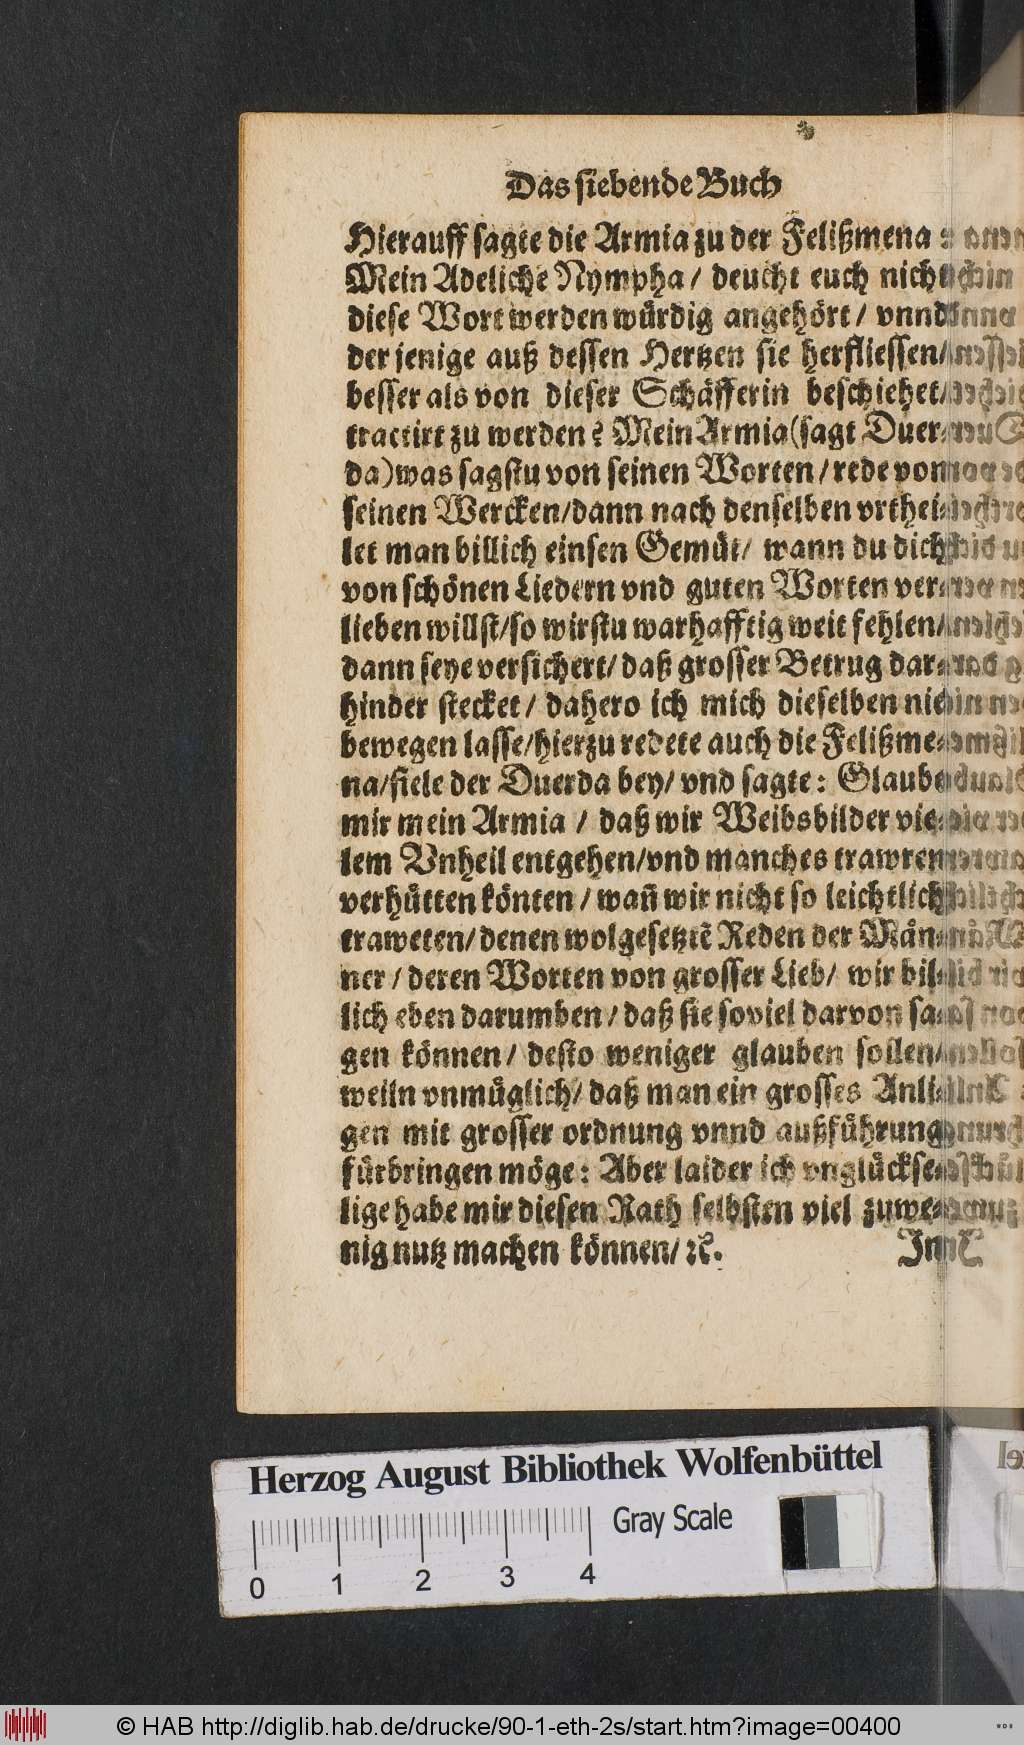 Das siebende Buch
Hierauff sagte die Armia zu der Felißmena :
Mein Adeliche Nympha / deucht euch nicht
diese Wort werden wůrdig angehört / vnnd
der jenige auß dessen Hertzen sie herfliessen/
besser als von dieser Schäfferin beschiehet/
tractirt zu werden? Mein Armia (sagt Duer-
da) was sagstu von seinen Worten / rede von
seinen Wercken/dann nach denselben vrthei-
let man billich einsen Gemůt/ wann du dich
von schönen Liedern vnd guten Worten ver-
lieben willst/so wirstu warhafftig weit fehlen/
dann seye versichert/ daß grosser Betrug dar-
hinder stecket / dahero ich mich dieselben nie
bewegen lasse/hierzu redete auch die Felißme-
na/fiele der Duerda bey/ vnd sagte: Glaube
mir mein Armia / daß wir Weibsbilder vie-
lem Vnheil entgehen/vnd manches trawren
verhůtten könten / wañ wir nicht so leichtlich
traweten/ denen wolgesetztẽ Reden der Män-
ner / deren Worten von grosser Lieb/ wir bil-
lich eben darumben / daß sie soviel darvon sa-
gen können / desto weniger glauben sollen/
weiln vnmůglich/ daß man ein grosses Anli-
gen mit grosser ordnung vnnd außführung
fürbringen möge: Aber laider ich vnglůckse-
lige habe mir diesen Rath selbsten viel zuwe-
nig nutz machen können/ ꝛc.
Inn
Herzog August Bibliothek Wolfenbüttel
Gray Scale
0 1 2 3 4
© HAB http://diglib.hab.de/drucke/90-1-eth-2s/start.htm?image=00400